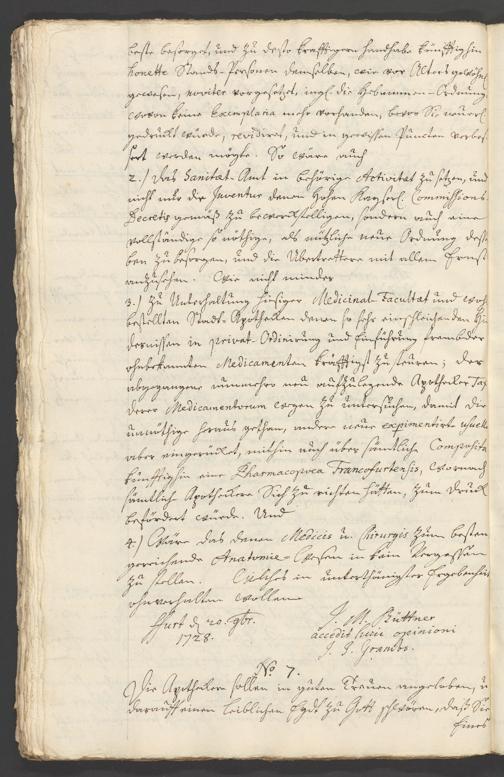 beste besorget, und zu desto kräfftigern handhabe künfftighin
honette Stands-Personen demselben, wie vor Alters gewöhnl.
gewesen, noviter vorgesetzt, ingl. die Hebammen-Ordnung
wovon keine Exemplaria mehr vorhanden, bevor Sie
gedruckt würde, revidiret, und in gewissen Puncten verbes-
sert werden mögte. So wäre auch
2.) Das Sanitat-Amt in behörige Activitat zu setzen, und
nicht nur die Inventur denen Hohen Kayserl. Commissions
Decretis gemäß zu bewerckstelligen, sondern auch eine
vollständige so nöthige, als nützliche neue Ordnung
ben zu besorgen, und die Ubertrettere mit allem Ernst
anzusehen. Wie nicht minder
3.) Zu Unterhaltung hiesiger Medicinal-Facultat und wohl
bestellten Stadt-Apothecken denen so sehr einschleichenden Hin
dernissen in privat-Ordinirung und Einführung frembder
ohnbekannten Medicamenten kräfftigst zu steuren; der
abgegangene nunmehro neu aufzulegende Apothecker Tax
derer Medicamentorum wegen zu untersuchen, damit die
unnöthige heraus gethan, andere neue expimentirte usuelle
aber eingerücket, mithin auch über sämtliche Composita
künfftighin eine Pharmacopoea Francofurtensis, wornach
sämtlich Apotheckere Sich zu richten hätten, zum Druck
befördert würde. Und
4.) Wäre das denen Medicis u. Chirurgis zum besten
gereichende Anatomie-Wesen in kein Vergessen
zu stellen. Welches in unterthänigster Ergebenheit
ohnverhalten wollen
Ffurt d. 20. 9br.
1728.
J. M. Büttner
accedit huic opinioni
J. J. Grambs.
No 7.
Die Apotheckere sollen in guten Treuen angeloben, u.
darauff einen leiblichen Eydt zu Gott schwören, daß Sie
Eines